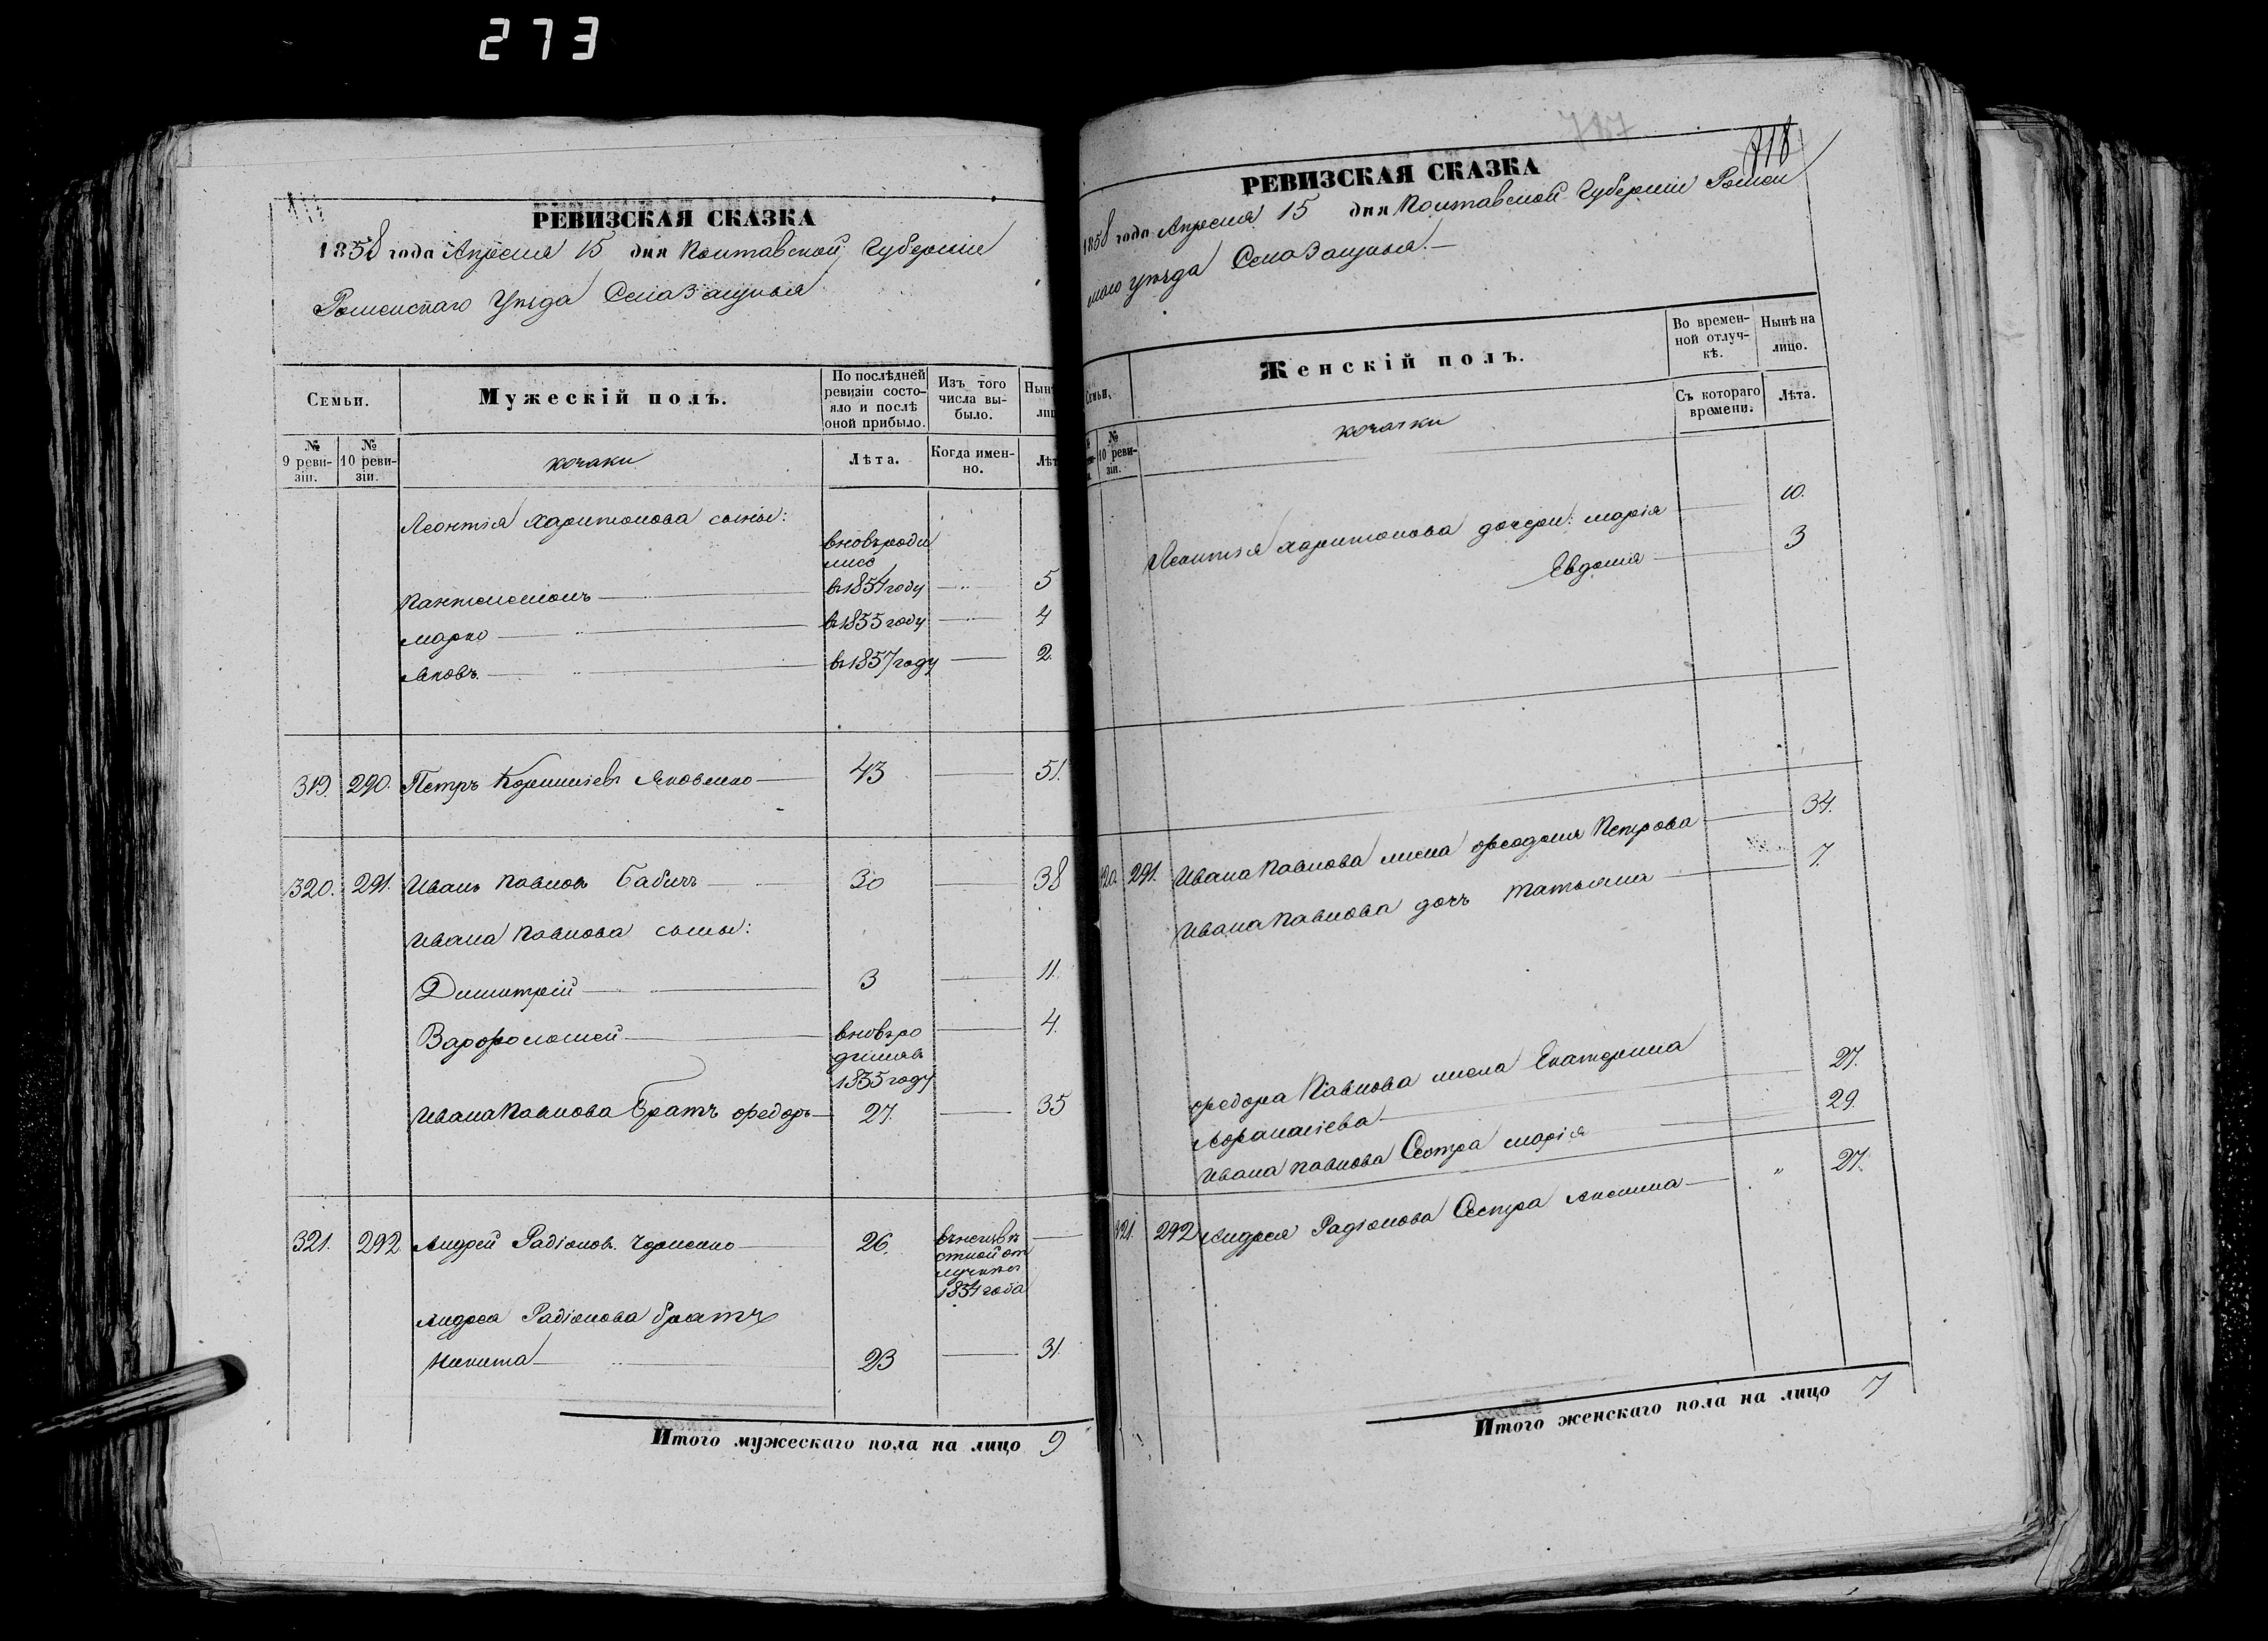 273
РЕВИЗСКАЯ СКАЗКА
1858 года Апреля 15 дня Полтавской Губерніи
Роменскаго Уѣзда Села Зацъкія
Семьи.
Мужескій полъ.
По послѣдней ревизіи состояло и послѣ оной прибыло.
Изъ того числа выбыло.
Нын
лиц
№ 9 ревизіи.
№ 10 ревизіи.
козаки
Лѣта.
Когда именно.
Лѣт
Леонтія Харитонова сыны:
вновь роди
лись
Пантелемонъ в 1854 году 5
Марко в 1855 году 4
Яковъ в 1857 году 2.
319. 290. Петръ Корнилiевъ Яковенко 43 51.
320. 291. Иванъ Павловъ Бабичъ 30 38
Ивана Павлова сыны:
Димитрій 3 11.
Варфоломей вновь ро 4.
дился в
1855 году
Ивана Павлова Братъ Федоръ 27. 35
321. 292 Андрей Радіоновъ 26. въ неизвѣ
стной от
лучкѣ
1854 года
Андрея Радіонова братъ
Никита 23 31.
Итого мужескаго пола на лицо 9
787
718
РЕВИЗСКАЯ СКАЗКА
1858 года Апреля 15 дня Полтавской Губерніи Ромен
скаго уѣзда Села Зацъкія
Семьи.
Женскій полъ.
Во временной отлучкѣ.
Нынѣ на лицо.
№ 10 ревизіи.
козачки
Съ котораго времени.
Лѣта.
Леонтія Харитонова дочери: Марія 10.
Евдокія 3
20. 291. Ивана Павлова жена Феодосія Петрова 34.
Ивана Павлова дочь Татьяна 7.
Федора Павлова жена Екатерина
Афанасіева 27.
Ивана Павлова Сестра Марія 29.
321. 292 Андрея Радіонова Сестра " 27.
Итого женскаго пола на лицо 7